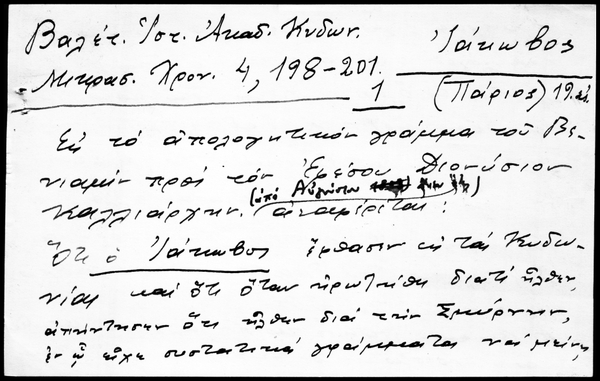 Βαλέτ. Ἱστ. Ἀκαδ. Κυδων.
Μικρασ. Χρον. 4, 198-201.
Ἰάκωβος
1
(Πάριος) 19
Εἰς τό ἀπολογητικόν γράμμα τοῦ Βε-
νιαμίν πρός τόν Ἐρέσου Διονύσιον
(ἀπό Αὐγούστου
Καλλιάρχην. ἀναφέρεται:
Ὅτι ὁ Ἰάκωβος ἔφθασεν εἰς τάς Κυδω-
νίας καί ὅτι ὅταν ἠρωτήθη διατί ἦλθεν,
ἀπήντησεν ὅτι ἦλθεν διά τήν Σμύρνην,
ἐν ᾧ εἶχε συστατικά γράμματα νά μείνῃ